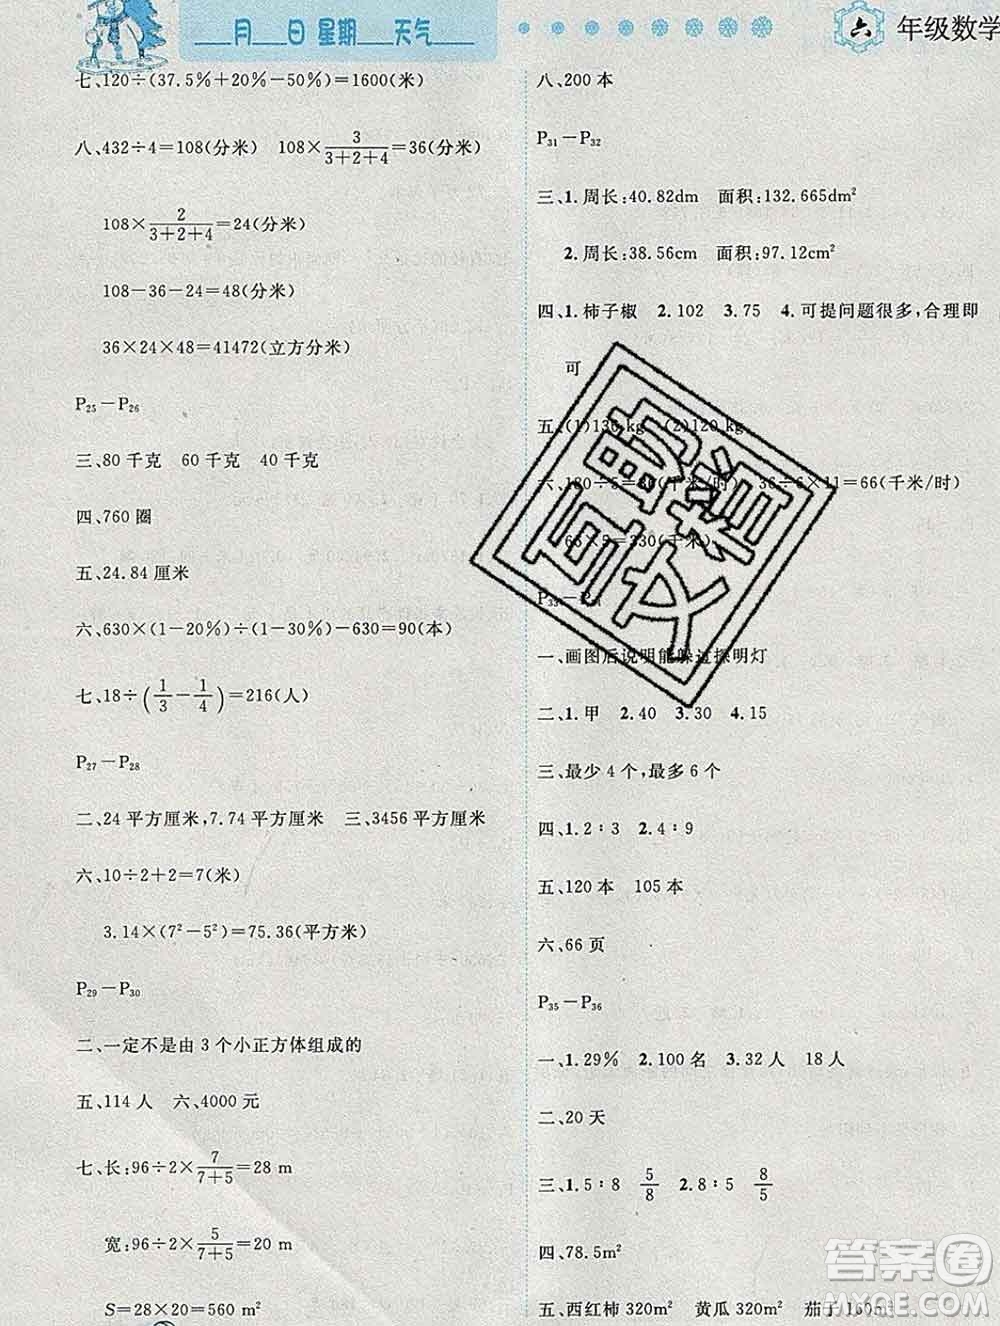 月 日 星期 天气
六 年级数学
七、120÷(37.5%+20%-50%)=1600(米)
八、432÷4=108(分米) 108×3/(3+2+4)=36(分米)
108×2/(3+2+4)=24(分米)
108-36-24=48(分米)
36×24×48=41472(立方分米)
P₂₅-P₂₆
三、80千克 60千克 40千克
四、760圈
五、24.84厘米
六、630×(1-20%)÷(1-30%)-630=90(本)
七、18÷(1/3-1/4)=216(人)
P₂₇-P₂₈
二、24平方厘米,7.74平方厘米 三、3456平方厘米
六、10÷2+2=7(米)
3.14×(7²-5²)=75.36(平方米)
P₂₉-P₃₀
二、一定不是由3个小正方体组成的
五、114人 六、4000元
七、长:96÷2×7/(7+5)=28 m
宽:96÷2×5/(7+5)=20 m
S=28×20=560 m²
八、200本
P₃₁-P₃₂
三、1.周长:40.82dm 面积:132.665dm²
2.周长:38.56cm 面积:97.12cm²
四、1.柿子椒 2.102 3.75 4.可提问题很多,合理即
可
五、(1)136 kg (2)120 kg
六、180÷5=36(千米/时) 36÷6×11=66(千米/时)
66×5=330(千米)
P₃₃-P₃₄
一、画图后说明能躲过探明灯
二、1.甲 2.40 3.30 4.15
三、最少4个,最多6个
四、1.2∶3 2.4∶9
五、120本 105本
六、66页
P₃₅-P₃₆
一、1.29% 2.100名 3.32人 18人
二、20天
三、1.5∶8 5/8 2.8∶5 8/5
四、78.5m²
五、西红柿320m² 黄瓜320m² 茄子160m²
答案圈